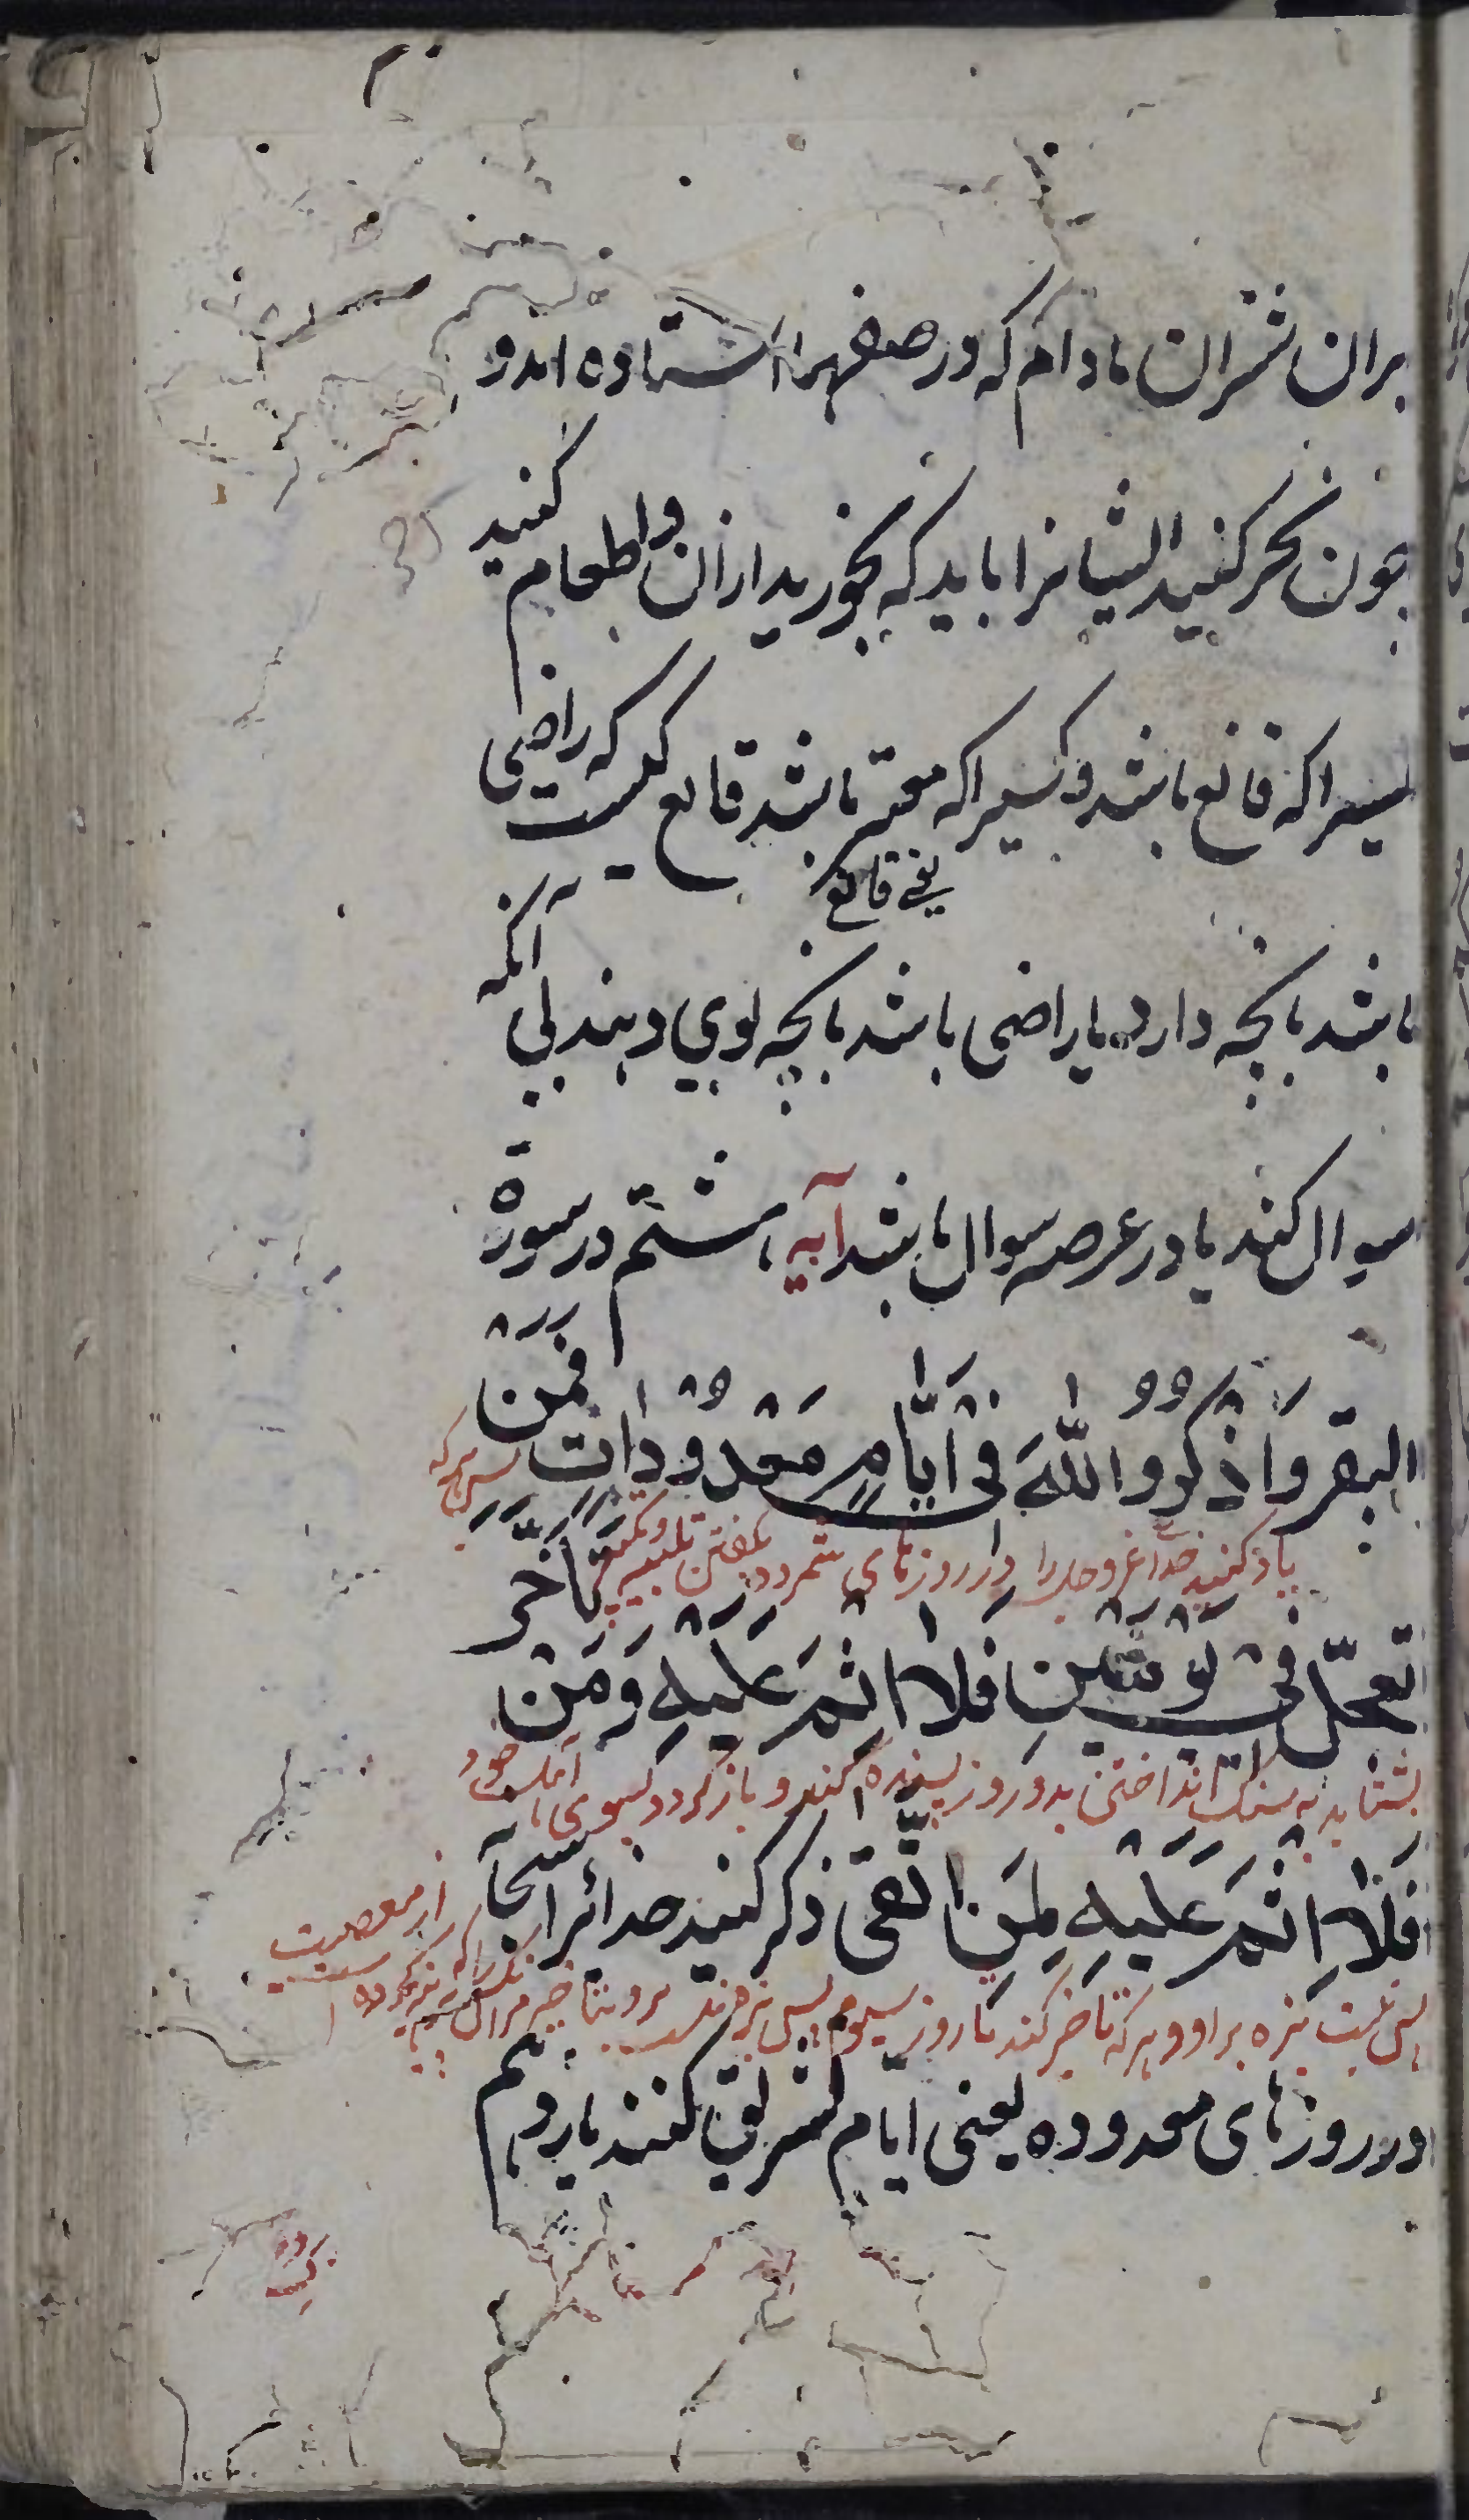 بران شتران مادام که در صفهرا استاده اند و
چون نحر کنید ایشانرا باید که بخورید ازان و اطعام کنید
کسیرا که قانع باشد و کسیرا که معتر باشد قانع کیست که راضی
یعنی قانع
باشد بانچه دارد یا راضی باشد بانچه بوی دهند بی آنکه
سوال کند یا در عرصه سوال باشد آیه هشتم در سورة
البقر وَاذْكُرُوا اللّٰهَ فِي أَيَّامٍ مَعْدُودَاتٍ فَمَنْ
یاد کنید خدا عز و جل را در روزهای شمرده بگفتن تلبیه و تکبیر پس هرکه
تَعَجَّلَ فِي يَوْمَيْنِ فَلَا اِثْمَ عَلَيْهِ وَمَنْ تَأَخَّرَ
بشتابد به سنگ انداختن بدو روز بسنده کند و باز گردد بسوی اهلیت خود
فَلَا اِثْمَ عَلَيْهِ لِمَنِ اتَّقَى ذکر کنید خدائرا سبحانه
پس نیست بزه بر او و هرکه تاخیر کند تا روز سیوم پس بزه نیست بر وی بتاخیر مر آنکس را که پرهیز کرده است از معصیت
در روزهای معدوده یعنی ایام تشریق کنند یازدهم